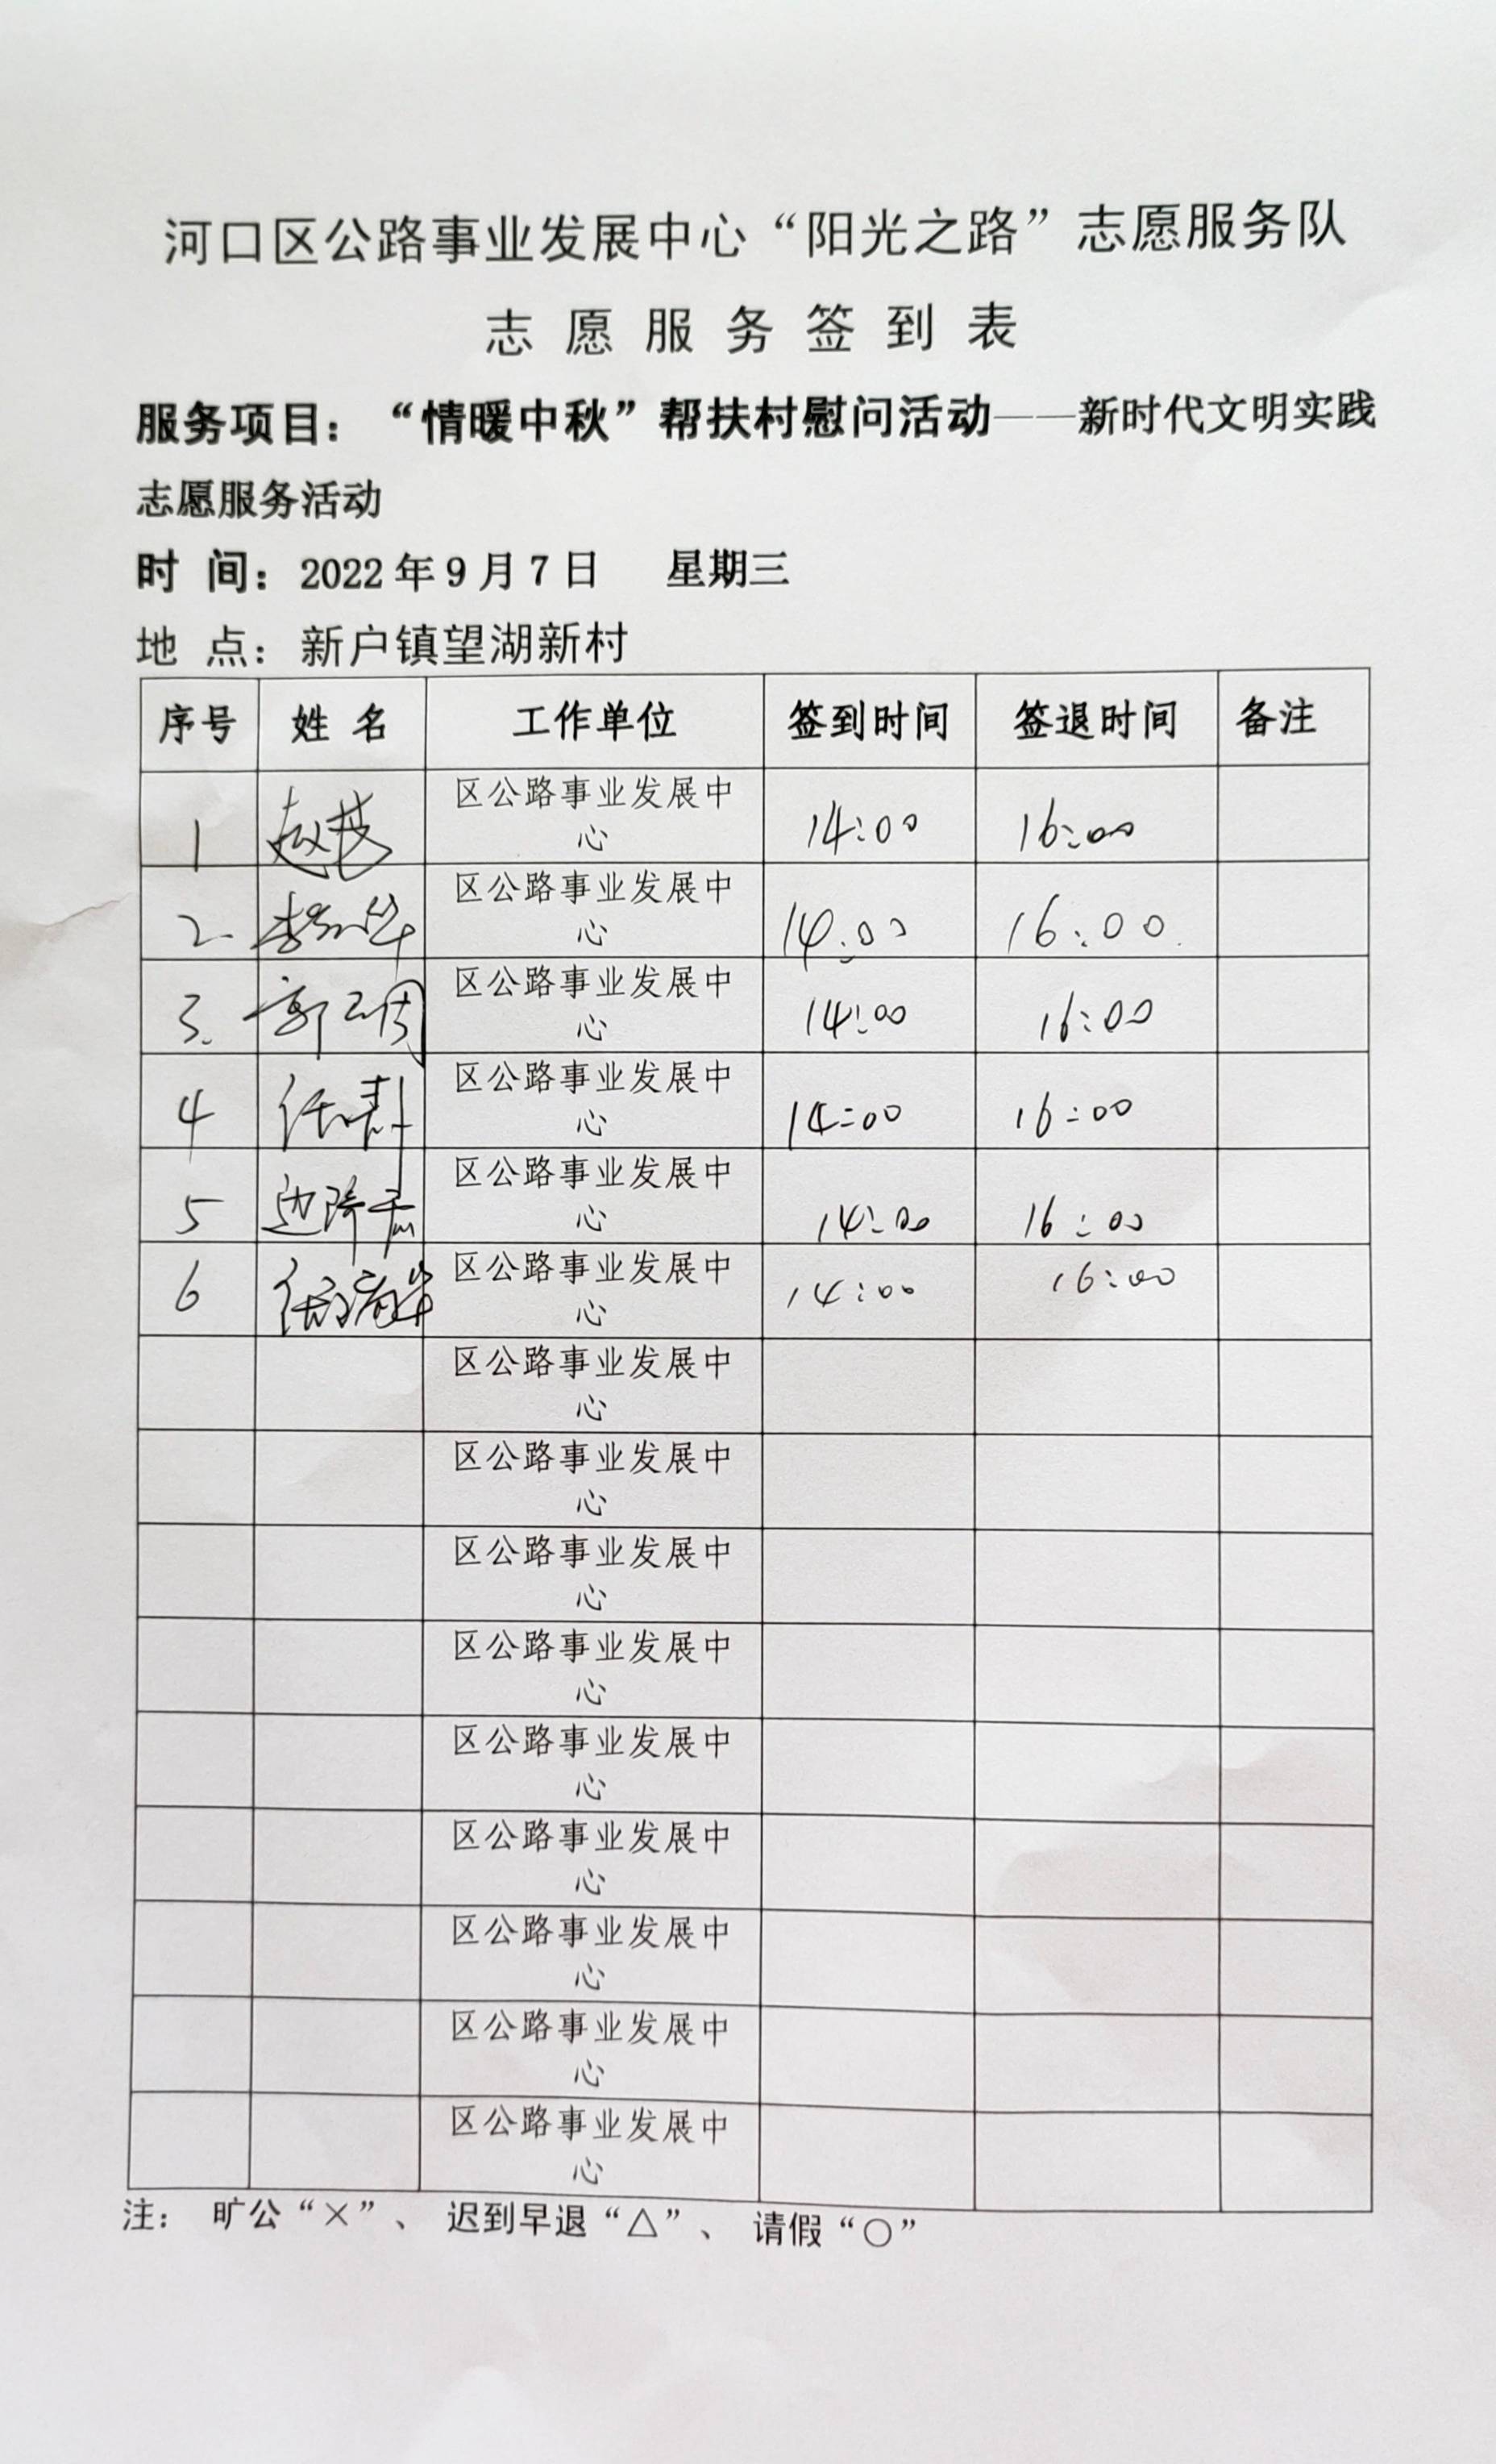 河口区公路事业发展中心“阳光之路”志愿服务队
志愿服务签到表
服务项目：“情暖中秋”帮扶村慰问活动——新时代文明实践
志愿服务活动
时 间：2022年9月7日 星期三
地 点：新户镇望湖新村
序号 姓名 工作单位 签到时间 签退时间 备注
区公路事业发展中
1 心 14:00 16:00
区公路事业发展中
2. 心 14:00 16:00.
区公路事业发展中
3. 郭 心 14:00 16:00
区公路事业发展中
4 任 心 14:00 16:00
区公路事业发展中
5 边 心 14:00 16:00
区公路事业发展中
6 任 心 14:00 16:00
区公路事业发展中
心
区公路事业发展中
心
区公路事业发展中
心
区公路事业发展中
心
区公路事业发展中
心
区公路事业发展中
心
区公路事业发展中
心
区公路事业发展中
心
区公路事业发展中
心
注： 旷公“×”、 迟到早退“△”、 请假“○”